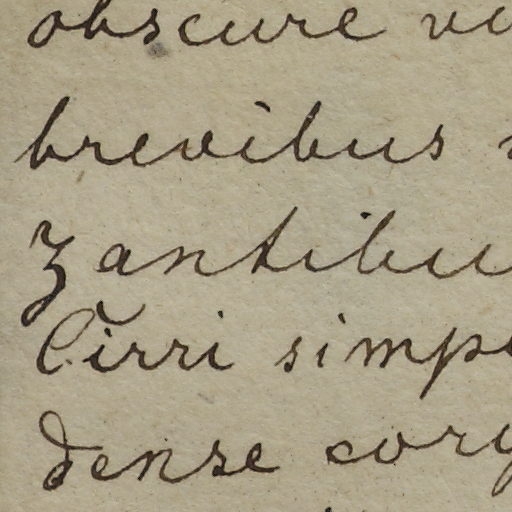 obscure ve
brevibus
zantibu
Cirri simp
dense cory